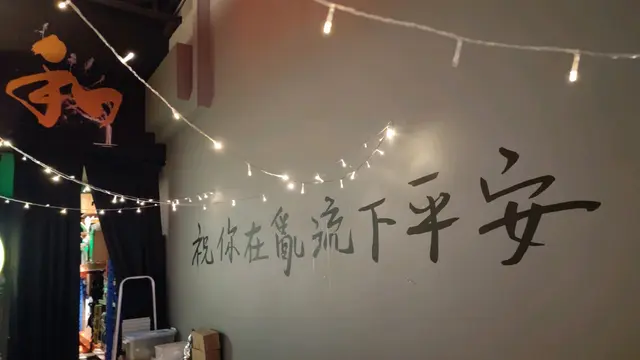 祝你在亂流下平安